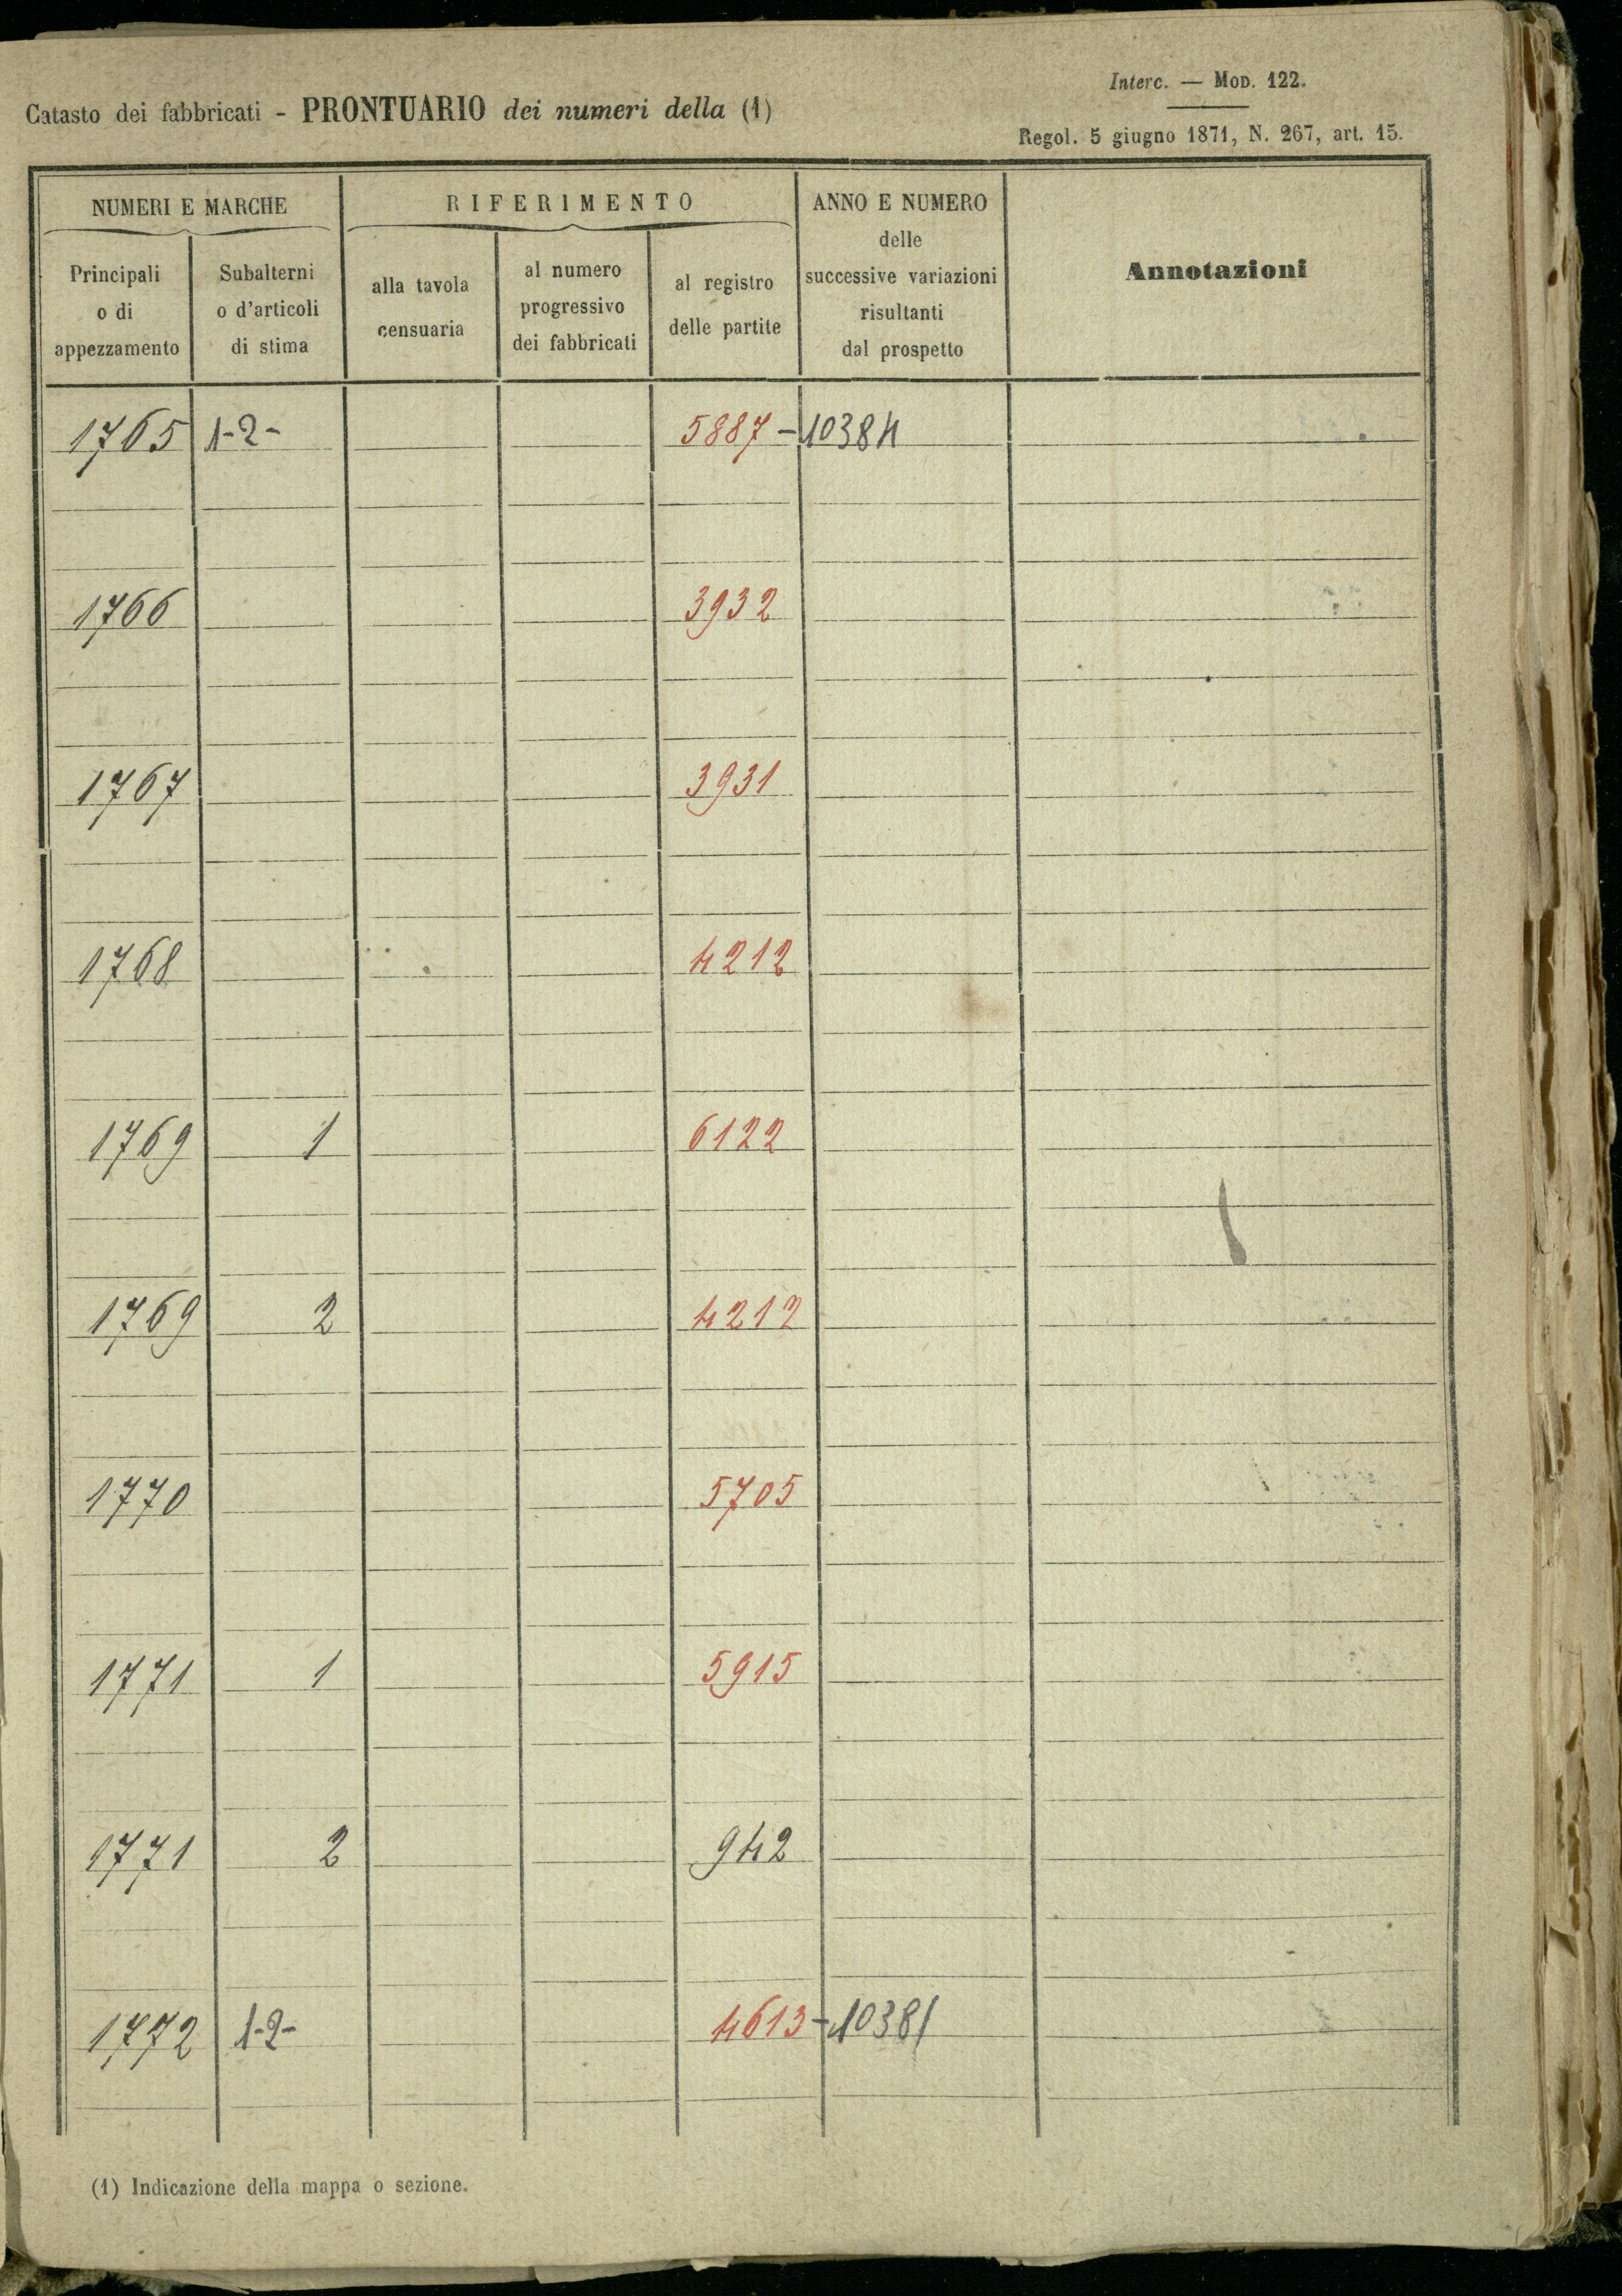 Interc. — MOD. 122.
Catasto dei fabbricati - PRONTUARIO dei numeri della (1)
Regol. 5 giugno 1871, N. 267, art. 15.
NUMERI E MARCHE
Principali
o di
appezzamento
Subalterni
o d'articoli
di stima
RIFERIMENTO
alla tavola
censuaria
al numero
progressivo
dei fabbricati
al registro
delle partite
ANNO E NUMERO
delle
successive variazioni
risultanti
dal prospetto
Annotazioni
1765 1-2- 5887 - 10384
1766 3932
1767 3931
1768 4212
1769 1 6122
1769 2 4212
1770 5705
1771 1 5915
1771 2 942
1772 1-2- 4613 - 10381
(1) Indicazione della mappa o sezione.